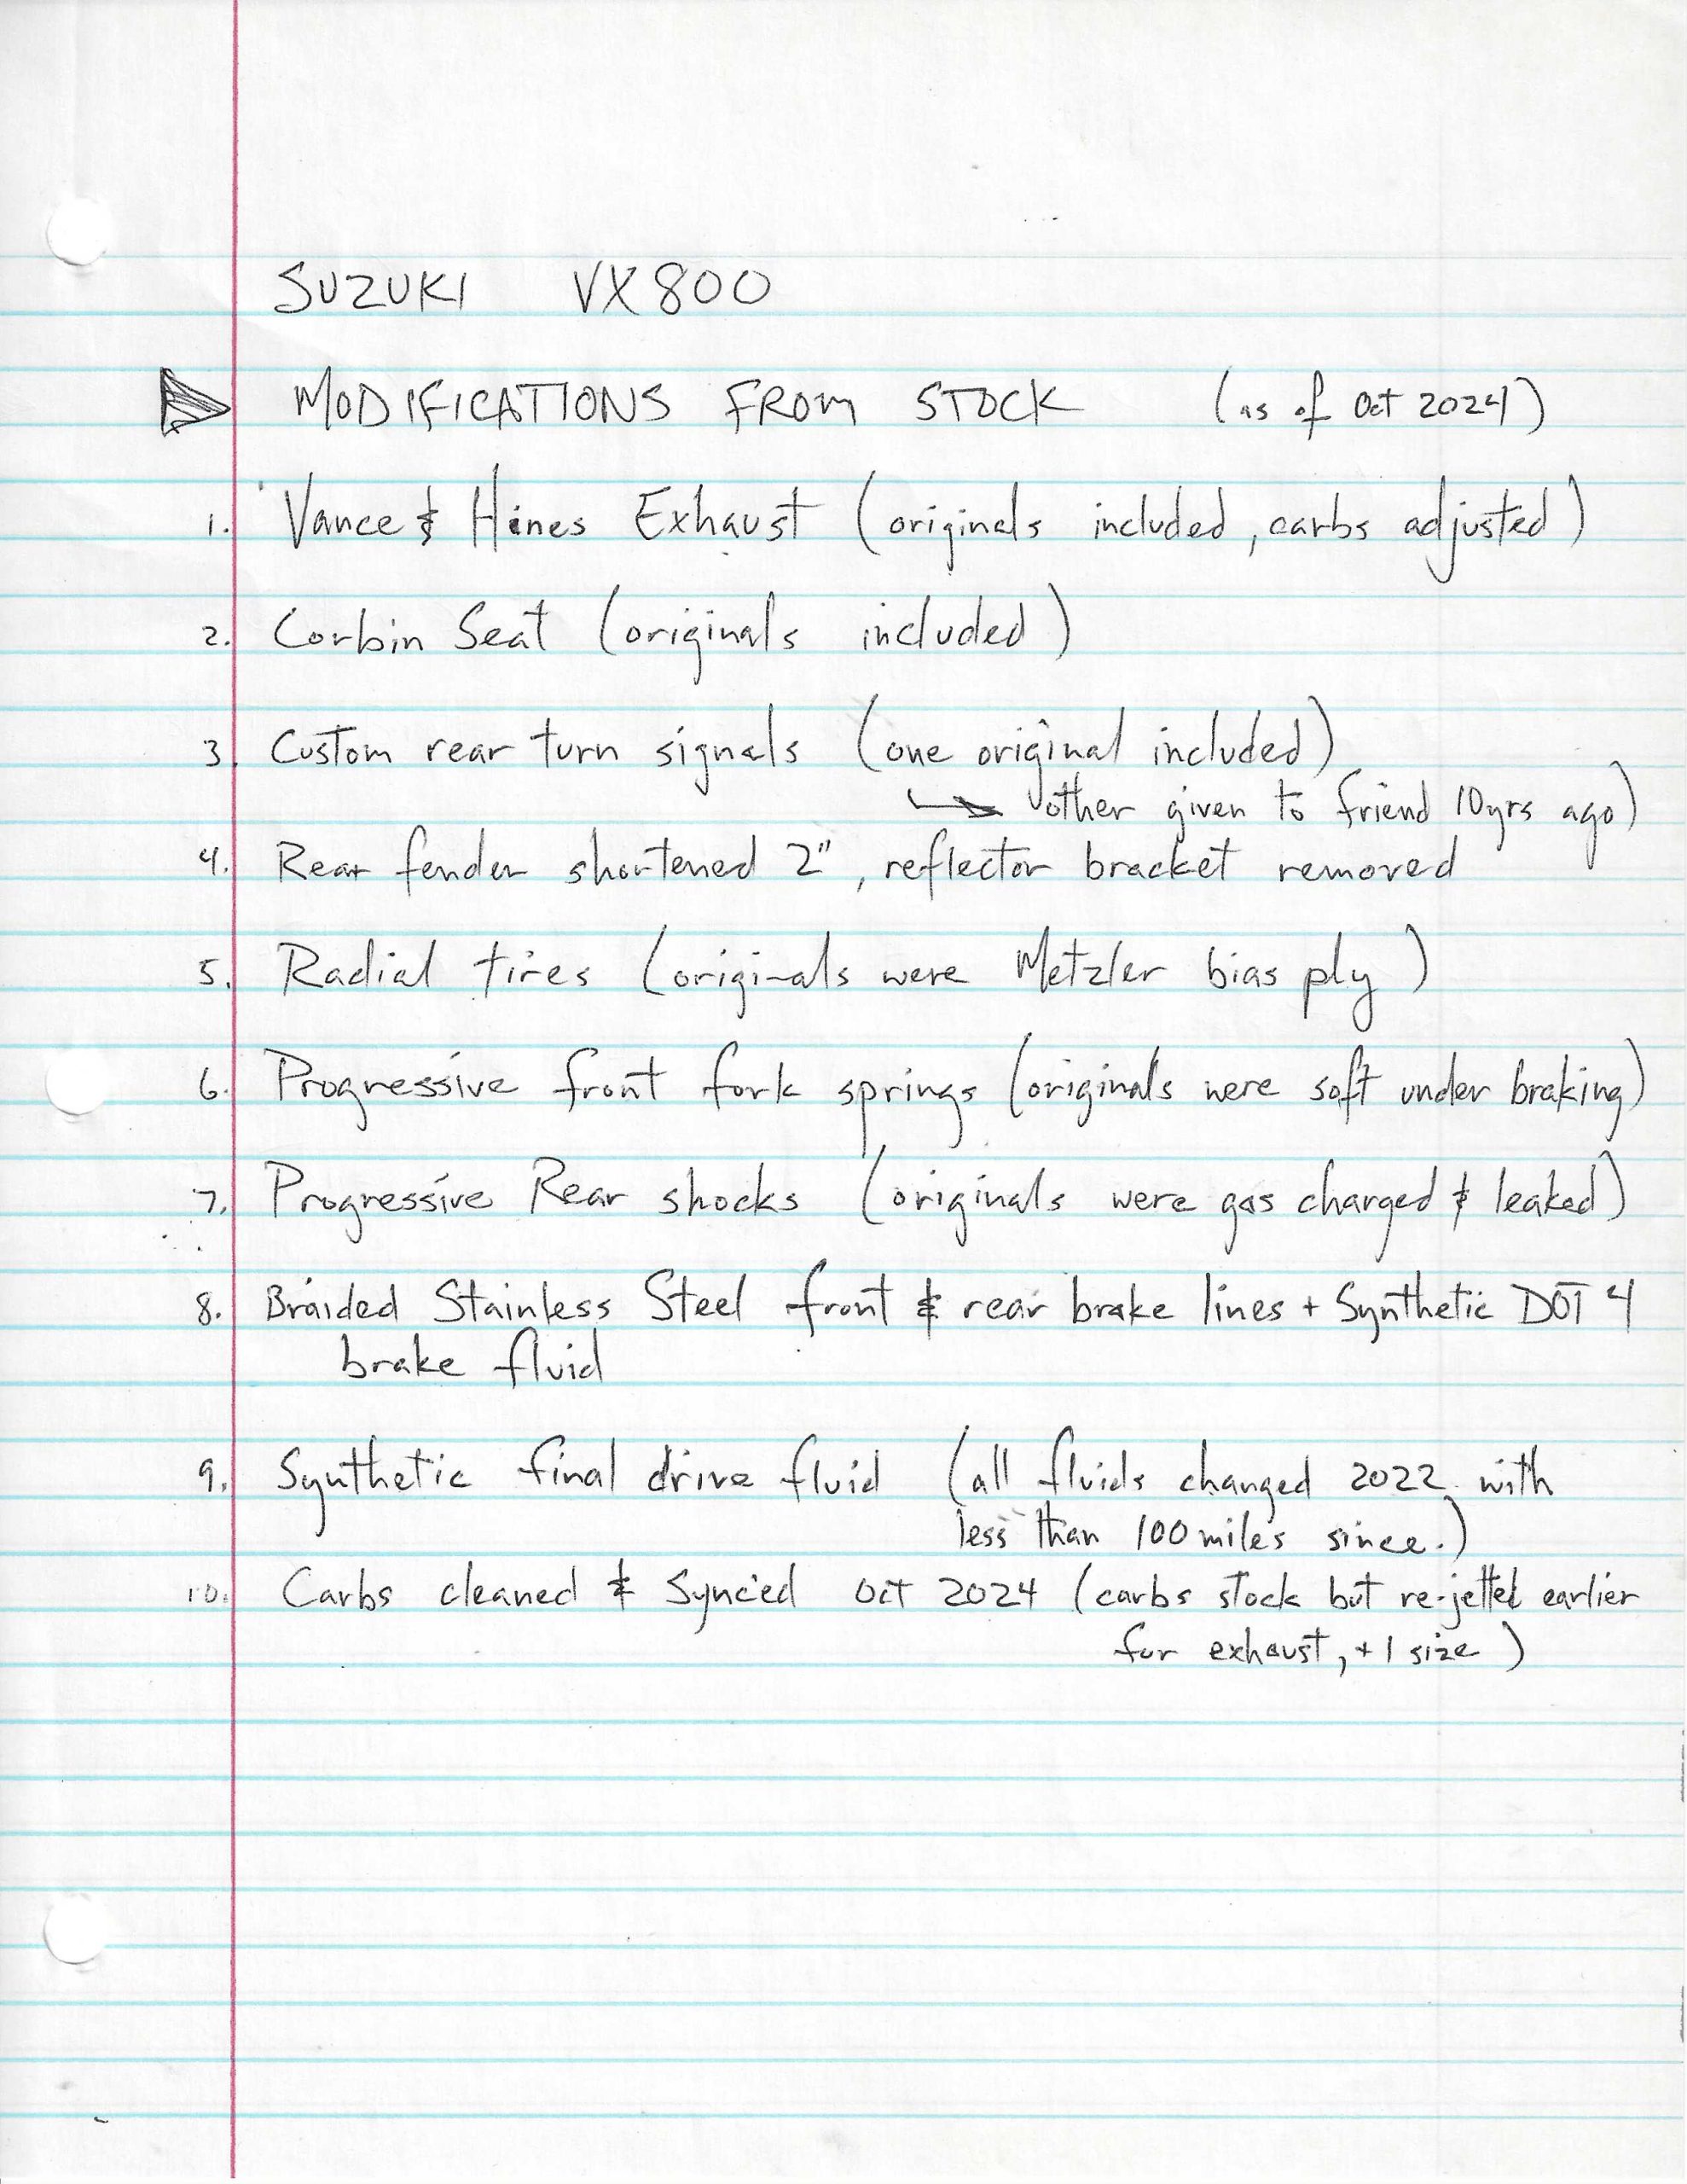 SUZUKI VX800
MODIFICATIONS FROM STOCK (as of Oct 2024)
1. Vance & Hines Exhaust (originals included, carbs adjusted)
2. Corbin Seat (originals included)
3. Custom rear turn signals (one original included)
other given to friend 10yrs ago)
4. Rear fender shortened 2", reflector bracket removed
5. Radial tires (originals were Metzler bias ply)
6. Progressive front fork springs (originals were soft under braking)
7. Progressive Rear shocks (originals were gas charged & leaked)
8. Braided Stainless Steel front & rear brake lines + Synthetic DOT 4
brake fluid
9. Synthetic final drive fluid (all fluids changed 2022 with
less than 100 miles since.)
10. Carbs cleaned & Sync'ed Oct 2024 (carbs stock but re-jetted earlier
for exhaust, +1 size)